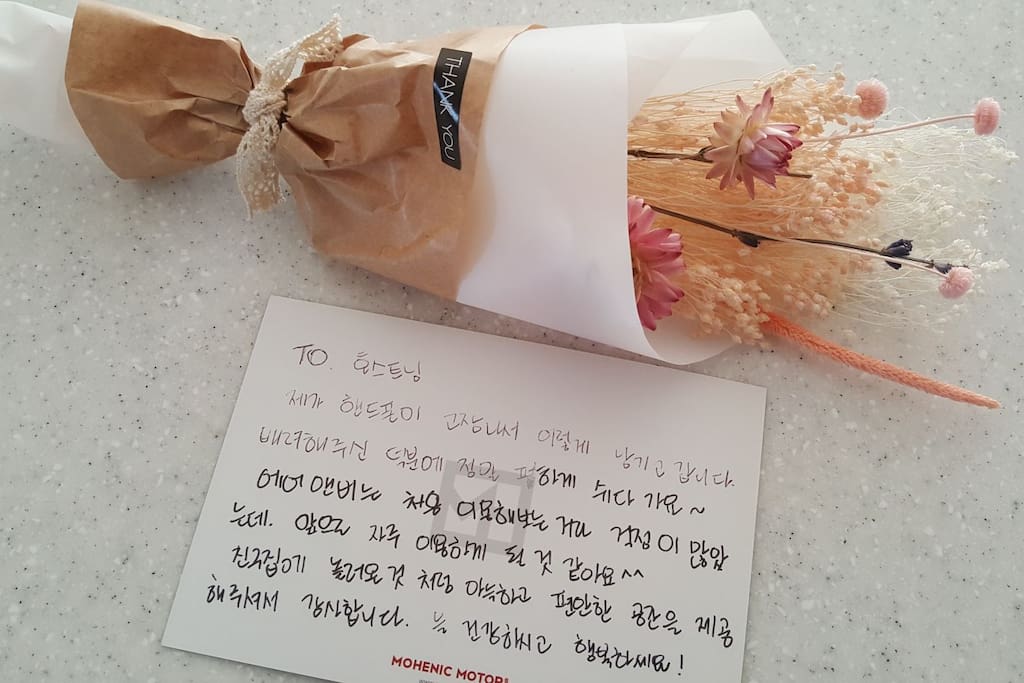 THANK YOU
TO. 호스트님
제가 핸드폰이 고장나서 이렇게 남기고 갑니다.
배려해주신 덕분에 정말 편하게 쉬다 가요~
에어앤비는 처음 이용해보는 거라 걱정이 많았
는데. 앞으로 자주 이용하게 될 것 같아요^^
친구집에 놀러온것 처럼 아늑하고 편안한 공간을 제공
해주셔서 감사합니다. 늘 건강하시고 행복하세요!
MOHENIC MOTORS